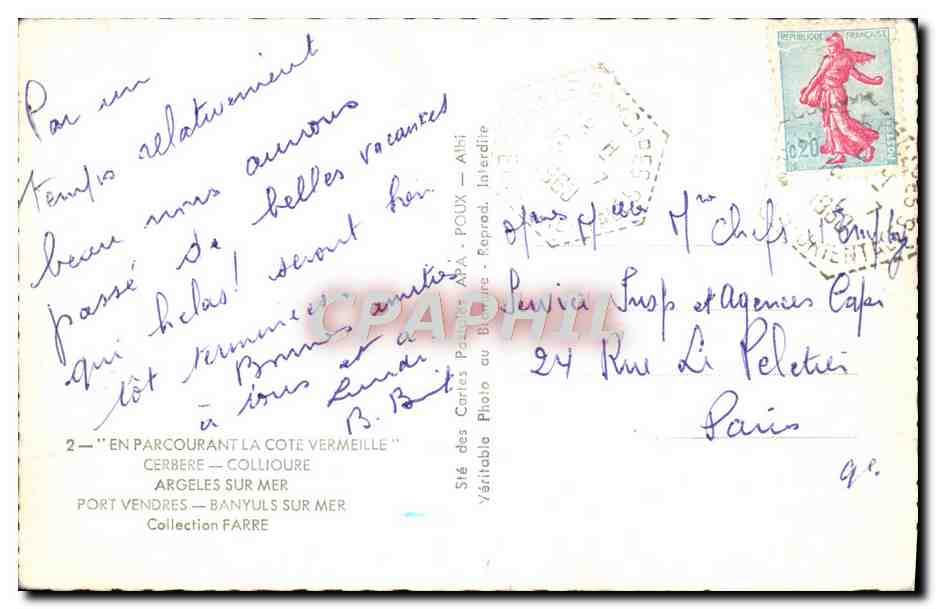 Par un
temps relativement
beau nous aurons
passé de belles vacances
qui helas! seront bien
tôt terminées
Bonnes amitiés
à tous et à
Lundi
B.
2 — "EN PARCOURANT LA COTE VERMEILLE"
CERBERE — COLLIOURE
ARGELES SUR MER
PORT VENDRES — BANYULS SUR MER
Collection FARRE
Sté des Cartes Postales APA - POUX — Albi
Véritable Photo au Bromure - Reprod. Interdite
CPAPHIL
REPUBLIQUE FRANÇAISE
0,20
POSTES
Mr Chefs
Service Insp et Agences Capi
24 Rue Le Peletier
Paris